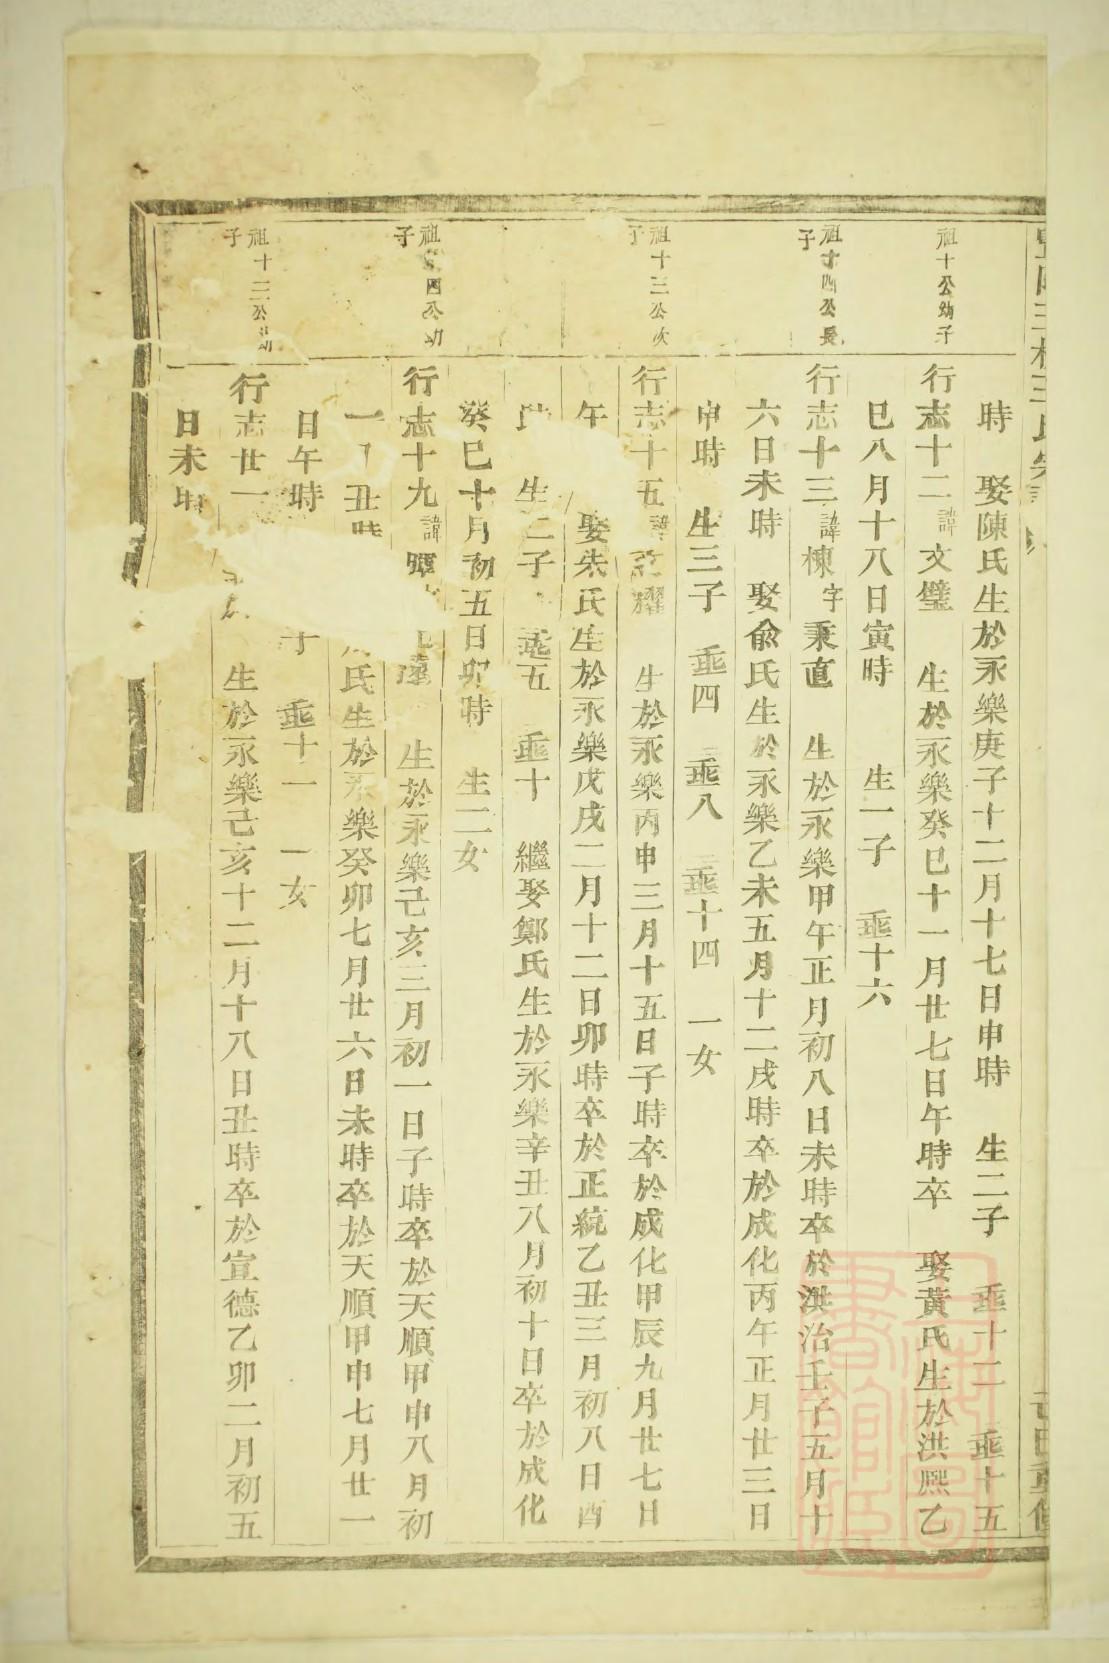 時 娶陳氏生於永樂庚子十二月十七日申時 生二子 埀十二 埀十五
祖十公幼子
行志十二 諱文璧 生於永樂癸巳十一月廿七日午時卒 娶黃氏生於洪熙乙
巳八月十八日寅時 生一子 埀十六
祖十四公長子
行志十三 諱棟 字秉直 生於永樂甲午正月初八日未時卒於洪治壬子五月十
六日未時 娶俞氏生於永樂乙未五月十二戌時卒於成化丙午正月廿三日
申時 生三子 埀四 埀八 埀十四 一女
祖十三公次子
行志十五 諱 耀 生於永樂丙申三月十五日子時卒於成化甲辰九月廿七日
午 娶朱氏生於永樂戊戌二月十二日卯時卒於正統乙丑三月初八日酉
生二子 埀五 埀十 繼娶鄭氏生於永樂辛丑八月初十日卒於成化
癸巳十月初五日卯時 生二女
祖十四公幼子
行志十九 諱 遠 生於永樂己亥三月初一日子時卒於天順甲申八月初
一 丑時 氏生於永樂癸卯七月廿六日未時卒於天順甲申七月廿一
日午時 子 埀十一 一女
祖十三公幼子
行志廿一 生於永樂己亥十二月十八日丑時卒於宣德乙卯二月初五
日未時